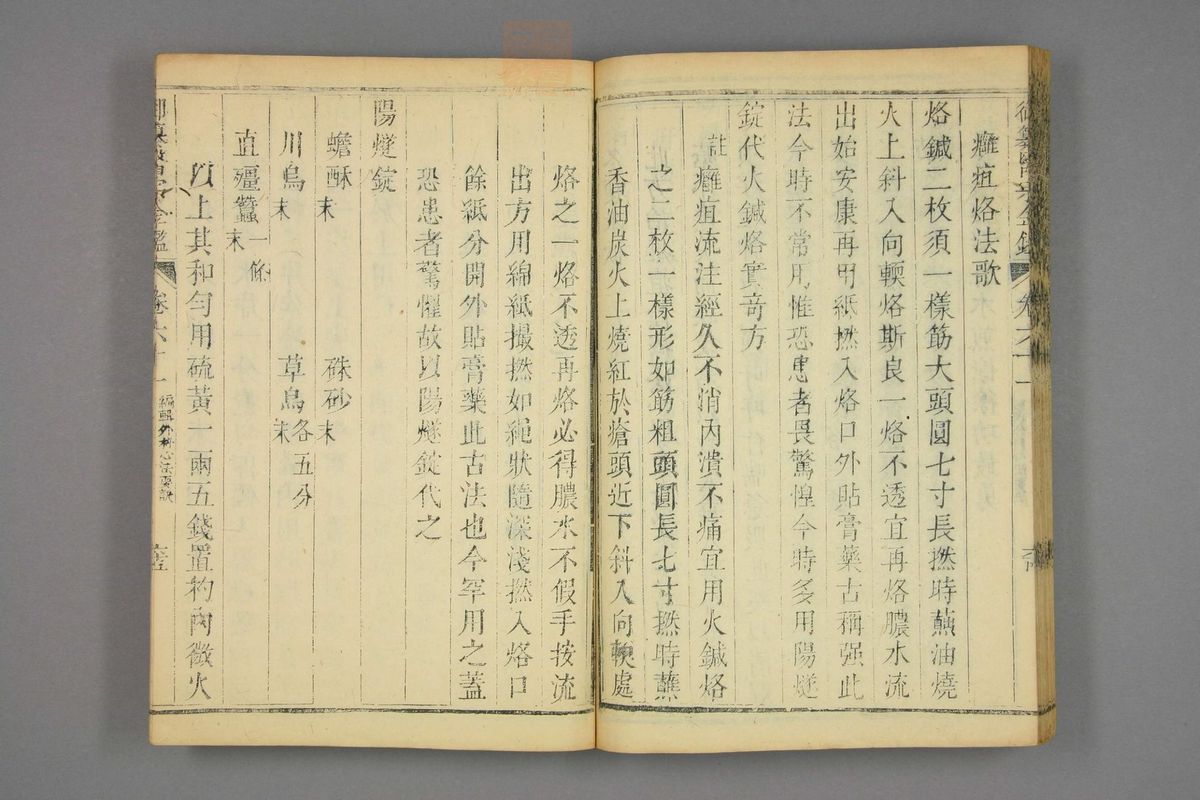 癰疽烙法歌
烙鍼二枚須一樣筯大頭圓七寸長撚時蘸油燒
火上斜入向輭烙斯良一烙不透宜再烙膿水流
出始安康再用紙撚入烙口外貼膏藥古稱强此
法今時不常用惟恐患者畏驚惶今時多用陽燧
錠代火鍼烙實竒方
註癰疽流注經久不消內潰不痛宜用火鍼烙
之二枚一樣形如筯粗頭圓長七寸撚時蘸
香油炭火上燒紅於瘡頭近下斜入向輭處
烙之一烙不透再烙必得膿水不假手按流
出方用綿紙撮撚如繩狀隨深淺撚入烙口
餘紙分開外貼膏藥此古法也今罕用之蓋
恐患者驚懼故以陽燧錠代之
陽燧錠
蟾酥末 硃砂末
川烏末 草烏末各五分
直殭蠶末一條
以上其和勻用硫黃一兩五錢置杓內微火
御纂醫宗金鑑 卷六十一 編輯外科心法要訣